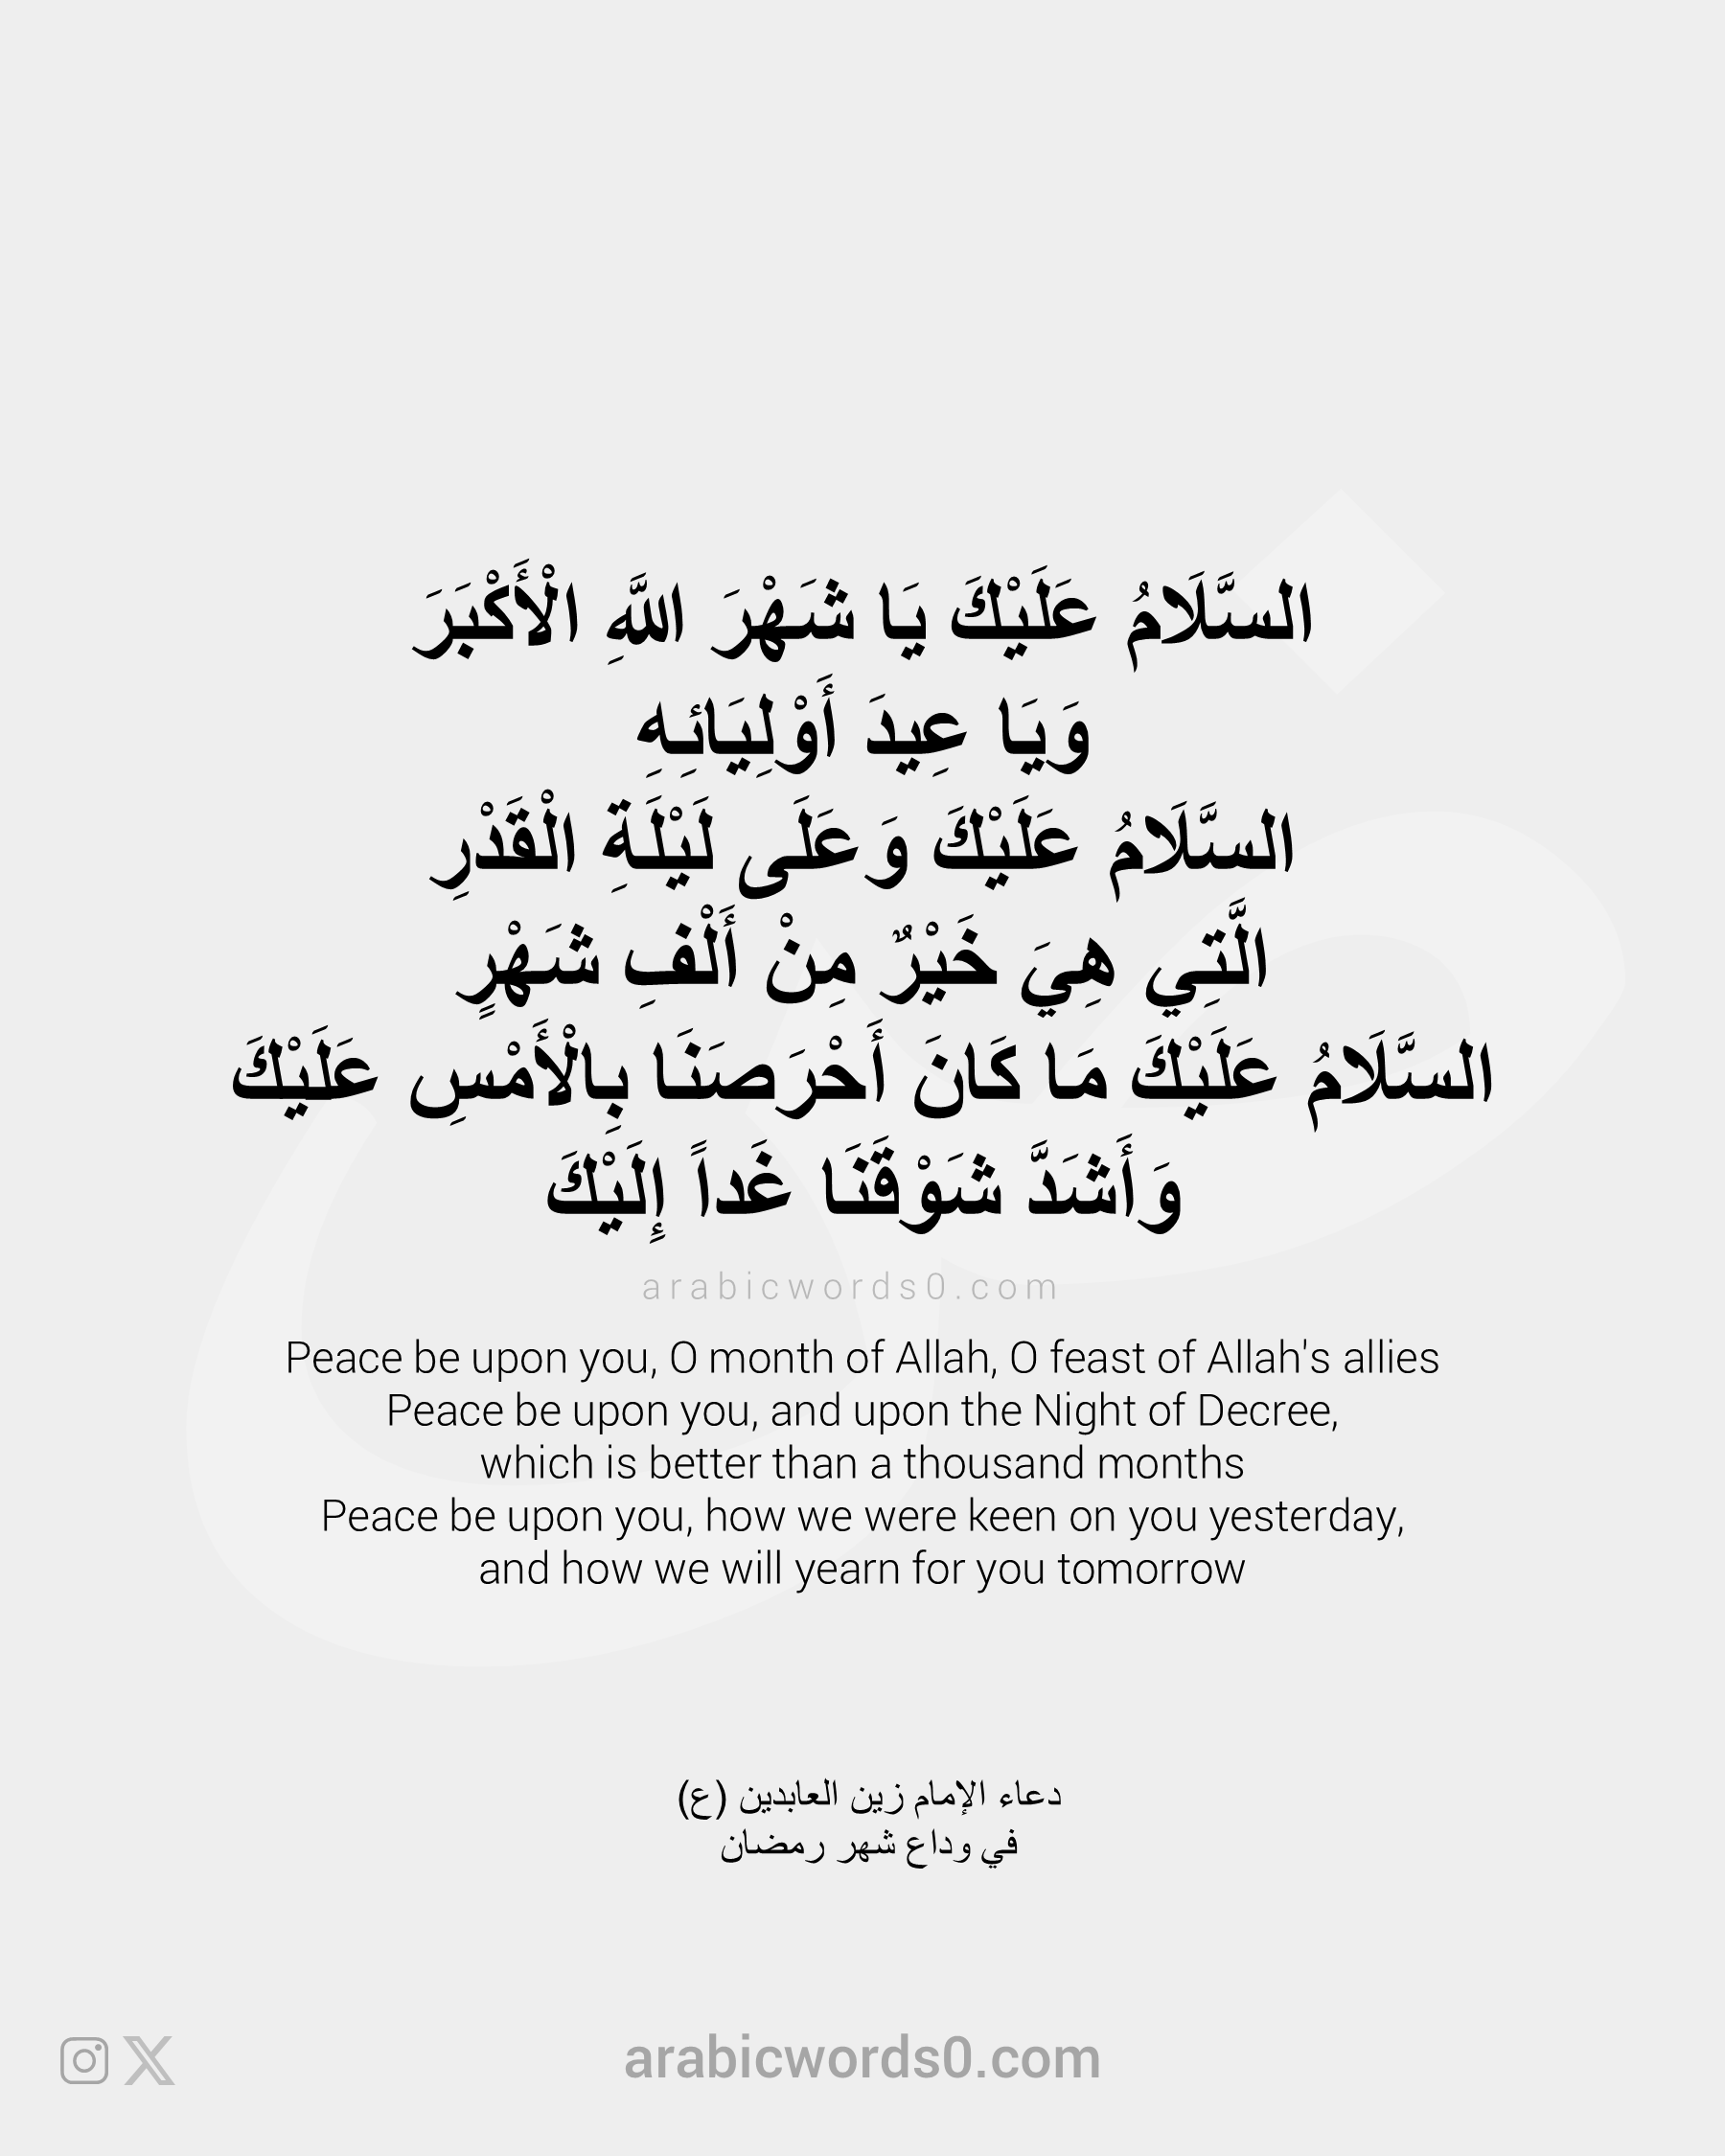 السَّلَامُ عَلَيْكَ يَا شَهْرَ اللَّهِ الْأَكْبَرَ
وَيَا عِيدَ أَوْلِيَائِهِ
السَّلَامُ عَلَيْكَ وَعَلَى لَيْلَةِ الْقَدْرِ
الَّتِي هِيَ خَيْرٌ مِنْ أَلْفِ شَهْرٍ
السَّلَامُ عَلَيْكَ مَا كَانَ أَحْرَصَنَا بِالْأَمْسِ عَلَيْكَ
وَأَشَدَّ شَوْقَنَا غَداً إِلَيْكَ
arabicwords0.com
Peace be upon you, O month of Allah, O feast of Allah's allies
Peace be upon you, and upon the Night of Decree,
which is better than a thousand months
Peace be upon you, how we were keen on you yesterday,
and how we will yearn for you tomorrow
دعاء الإمام زين العابدين (ع)
في وداع شهر رمضان
arabicwords0.com